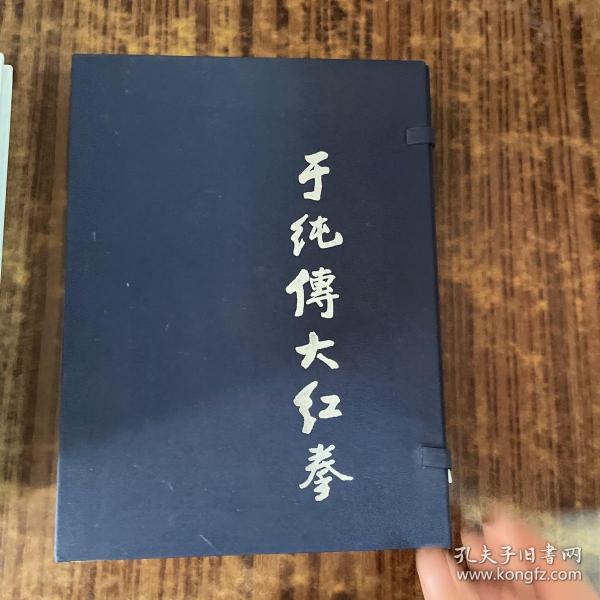 于纯傳大红拳
孔夫子旧書网
www.kongfz.com